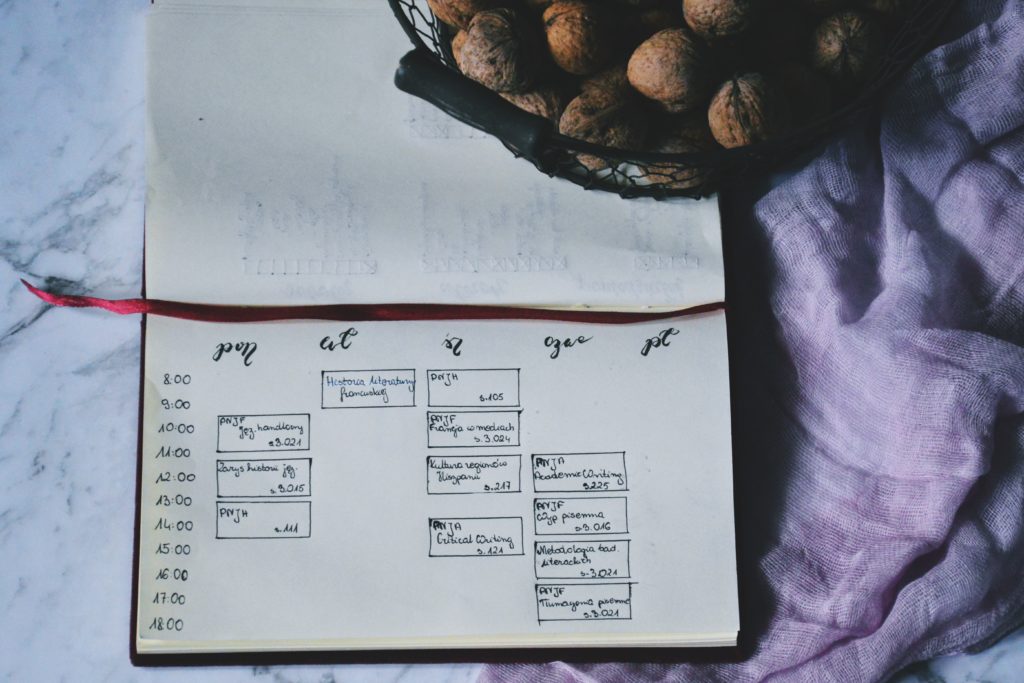 pon wt śr czw pt
8:00
9:00
10:00
11:00
12:00
13:00
14:00
15:00
16:00
17:00
18:00
PNJF
jęz. handlowy
s.3.021
Zarys historii jęz.
s.3.015
PNJH
s.111
Historia literatury
francuskiej
PNJH
s.105
PNJF
Francja w mediach
s.3.024
Kultura regionów
Hiszpanii
s.217
PNJA
Critical Writing
s.121
PNJA
Academic Writing
s.225
PNJF
Wyp pisemna
s.3.016
Metodologia bad.
literackich
s.3.021
PNJF
Tłumaczenia pisemne
s.3.021